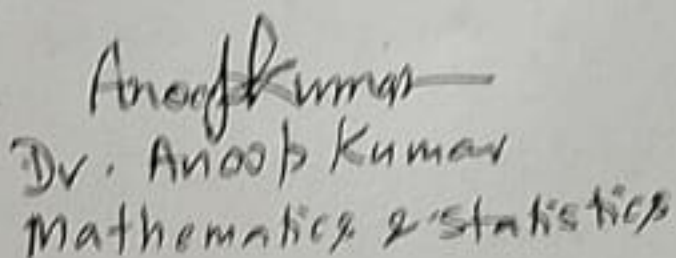 Anoop Kumar
Dr. Anoop Kumar
Mathematics & Statistics